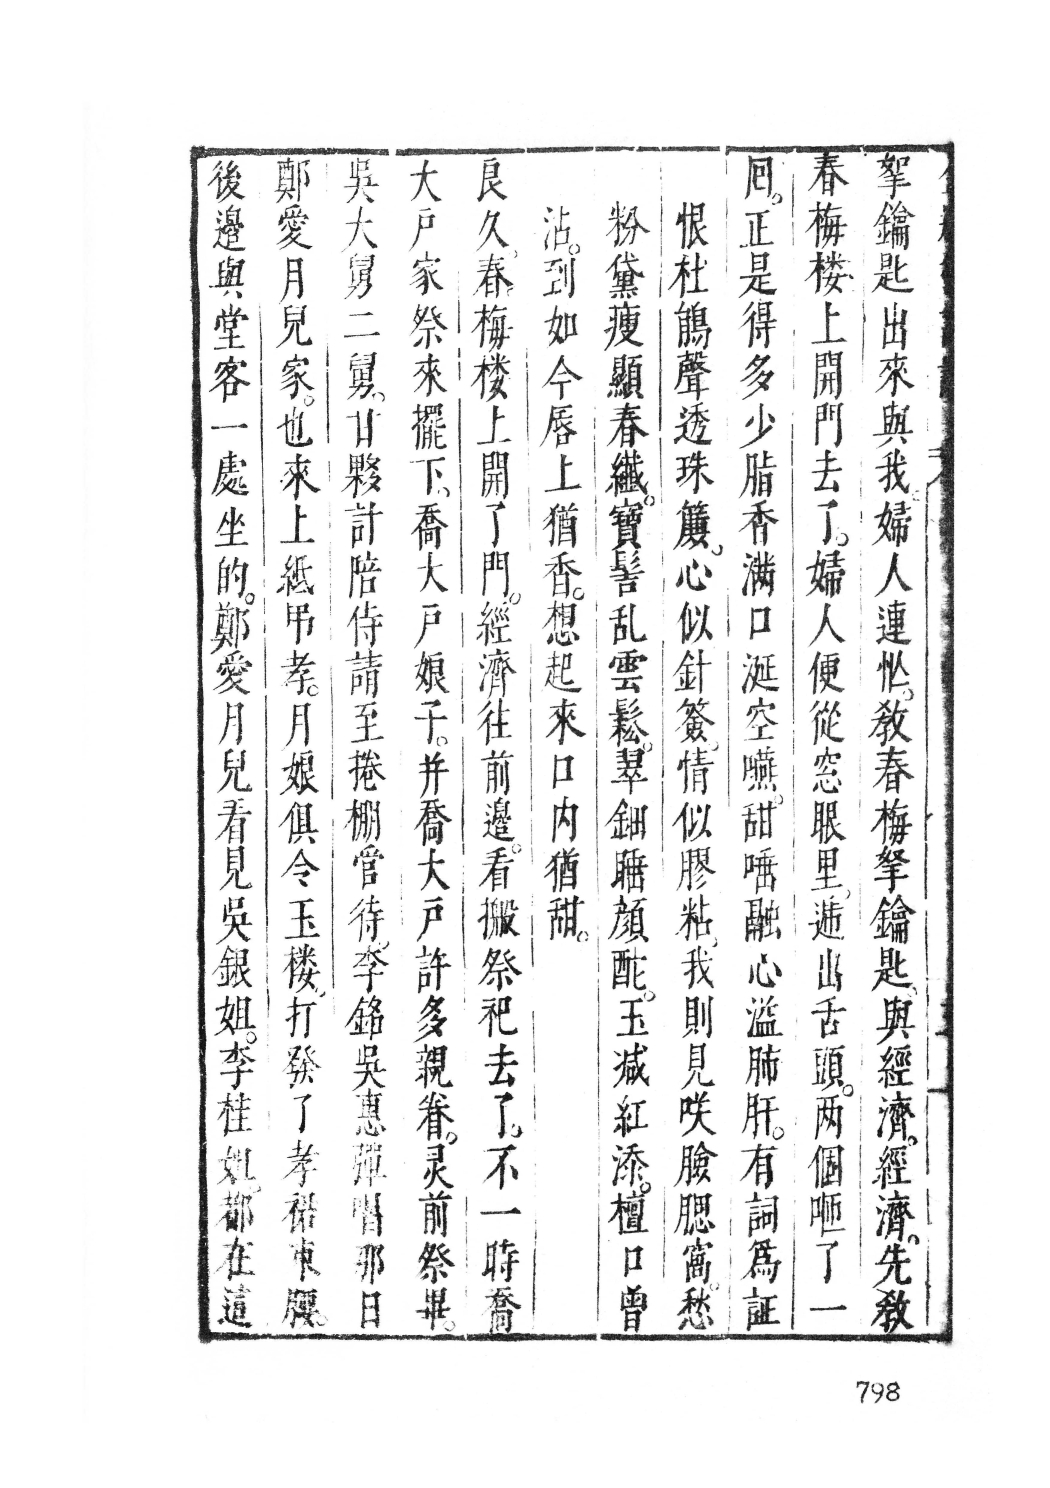 拏鑰匙出來與我。婦人連忙。教春梅拏鑰匙。與經濟。經濟。先教
春梅楼上開門去了。婦人便從窓眼里。遞出舌頭。两個咂了一
回。正是得多少脂香满口涎空嚥。甜唾融心溢肺肝。有詞爲証
恨杜鵑聲透珠簾。心似針簽。情似膠粘。我則見咲臉腮窩。愁
粉黛瘦顯春纎。寶髻乱雲鬆。翠鈿睡顔酡。玉减紅添。檀口曾
沾。到如今唇上猶香。想起來口内猶甜。
良久。春梅楼上開了門。經濟往前邉。看搬祭祀去了。不一時喬
大戶家祭來擺下。喬大戶娘子。并喬大戶許多親眷。灵前祭畢。
吳大舅二舅。甘夥計陪侍請至捲棚管待。李銘吳惠彈唱那日
鄭愛月兒家。也來上紙吊孝。月娘俱令玉楼。打發了孝裙束腰。
後邉與堂客一處坐的。鄭愛月兒看見吳銀姐。李桂姐。都在這
798